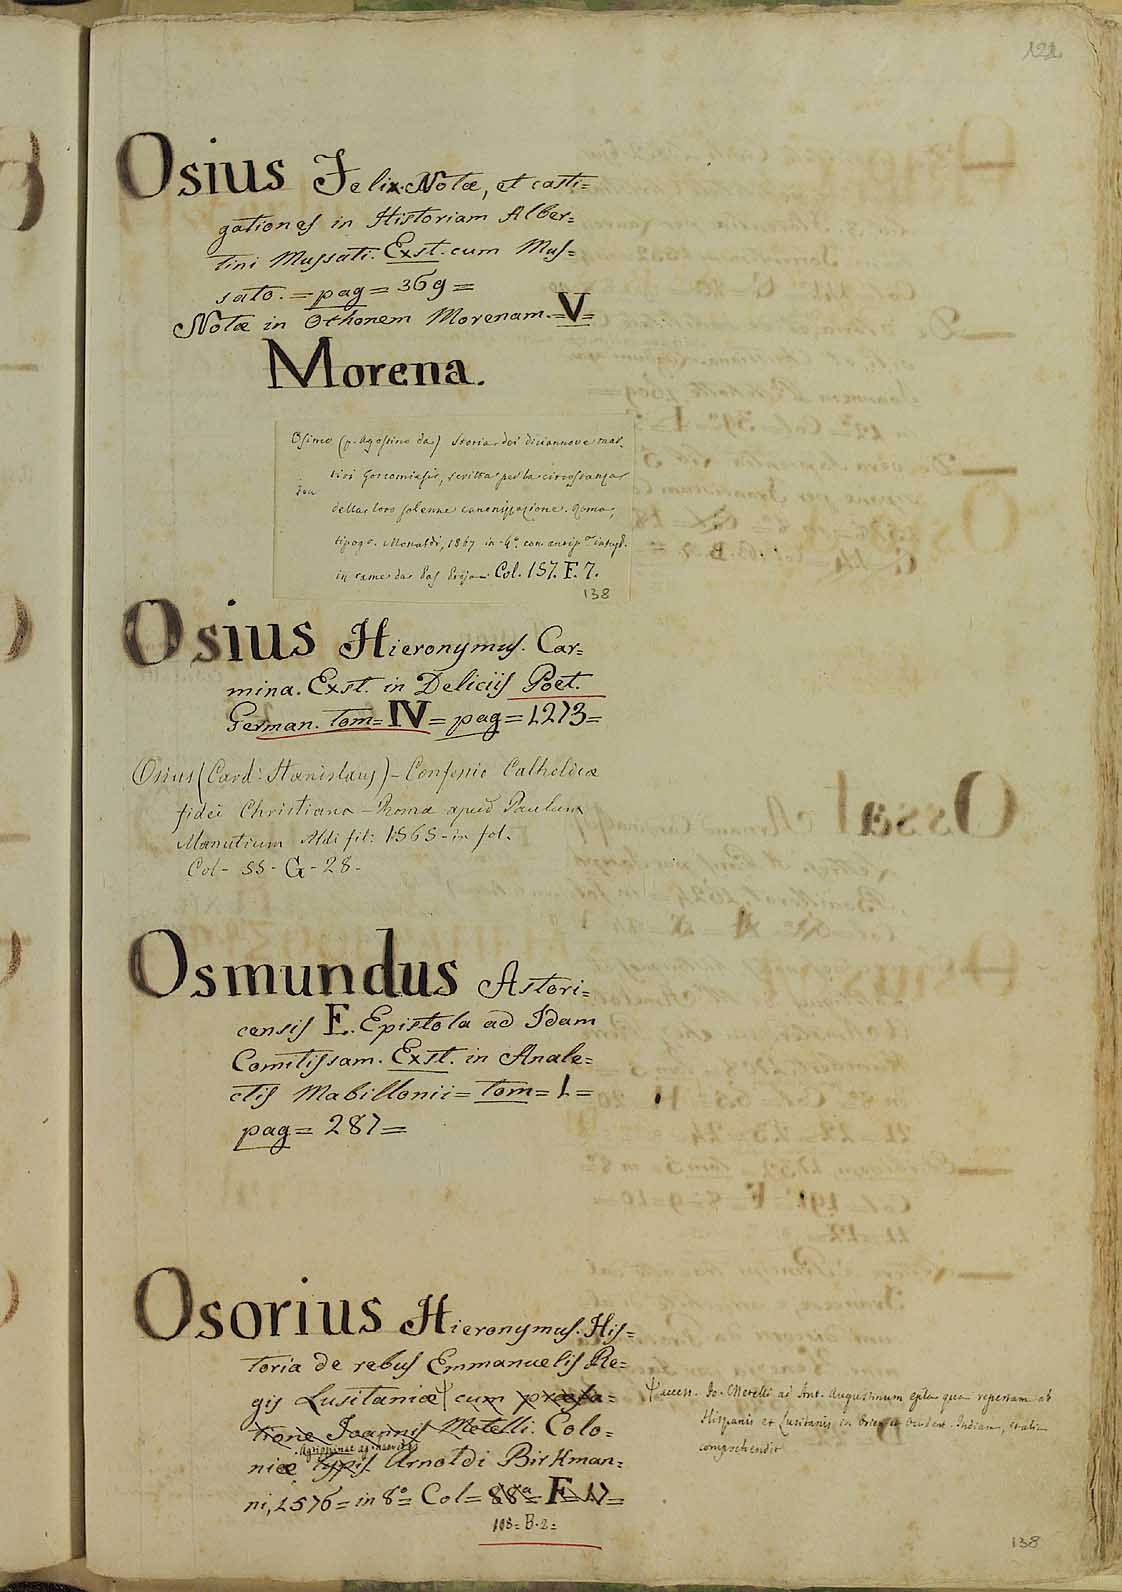 121
Osius Felix. Notæ, et casti=
gationes in Historiam Alber=
tini Mussati. Exst. cum Mus=
sato. = pag = 369 =
Notæ in Othonem Morenam. = V =
Morena.
Osimo (p. Agostino da) Storia dei diciannove mar-
tiri Gorcomiesi, scritta per la circostanza
della loro solenne canonizzazione. Roma,
tipogr. Monaldi, 1867 in-4.º con antip.
in rame da Col. 157. F. 7.
138
Osius Hieronymus. Car=
mina. Exst. in Deliciis Poet.
German. tom = IV = pag = 1273 =
Osius (Card: Stanislaus) - Confessio Catholicæ
fidei Christiana - Romæ apud Paulum
Manutium Aldi fil: 1565 - in fol.
Col - 55 - G - 28 -
Osmundus Astori=
censis E. Epistola ad Idam
Comitissam. Exst. in Anale=
ctis Mabillonii = tom = I =
pag = 287 =
Osorius Hieronymus. His=
toria de rebus Emmanuelis Re=
gis Lusitaniæ cum præfa=
tione Joannis Metelli. Colo=
niæ typis Arnoldi Birkman=
ni, 1576 = in 8º = Col = 88ª = F = 17 =
108 = B. 2 =
access. Jo. Metelli ad Ant. Augustinum epla qua repertam ab
Hispanis et Lusitanis in Orient. et Occident. Indiam,
comprehendit
138